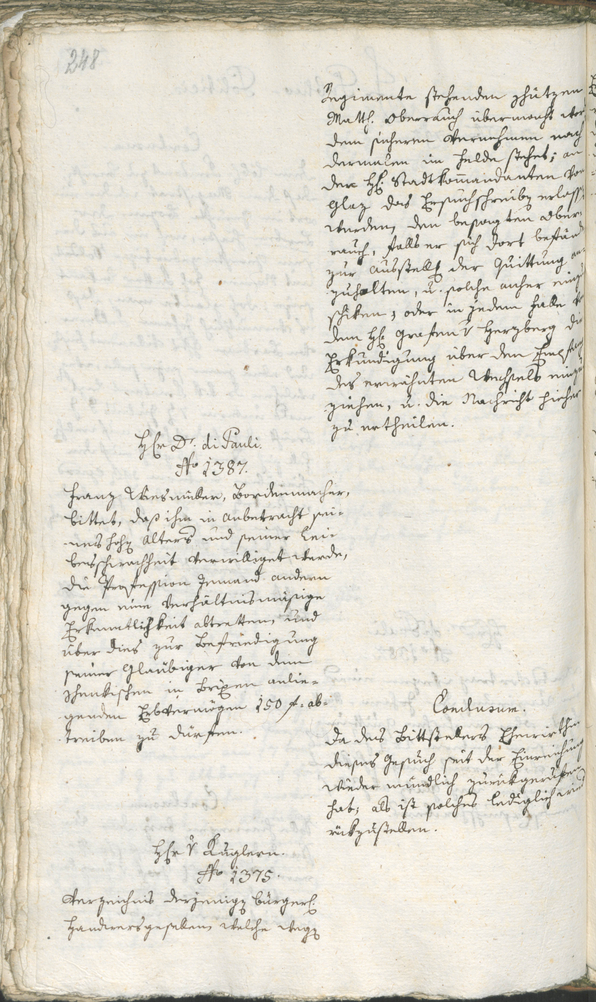 248
Regimente stehenden Schützen
Math. Oberrauch übermacht
dem sicheren Vernehmen nach
dermalen im Felde stehet; an
den H. Stadtkommandanten von
Glaz das Ersuchschreiben erlassen
werden, den besagten Ober-
rauch, falls er sich dort befände
zur Ausstellung der Quittung an-
zuhalten, u. solche anher einzu-
schiken; oder in jedem Falle
dem H. Grafen v. Herzberg die
Erkundigung über den Empfang
des erwähnten Wechsels einzu-
ziehen, u. die Nachricht hieher
zu ertheilen.
Hr. Dr. di Pauli.
No 1387.
Franz Wiesmüller, Bordenmacher,
bittet, daß ihm in Anbetracht sei-
nes hohen Alters und seiner Lei-
besschwachheit verwilliget werde,
die Profession Jemand andern
gegen eine verhältnismäsige
Erkenntlichkeit abtretten, und
über dies zur Befriedigung
seiner Gläubiger von dem
in Brixen anlie-
genden Erbvermögen 150 f. ab-
treiben zu dürfen.
Conclusum.
Da des Bittstellers Ehewirthin
dieses Gesuch seit der Einreichung
wieder mündlich zurückgerufen
hat; als ist solches lediglich
rückzustellen.
Hr. v. Kuglern.
No 1375.
Verzeichnis derjenigen bürgerl.
Handwerksgesellen, welche wegen